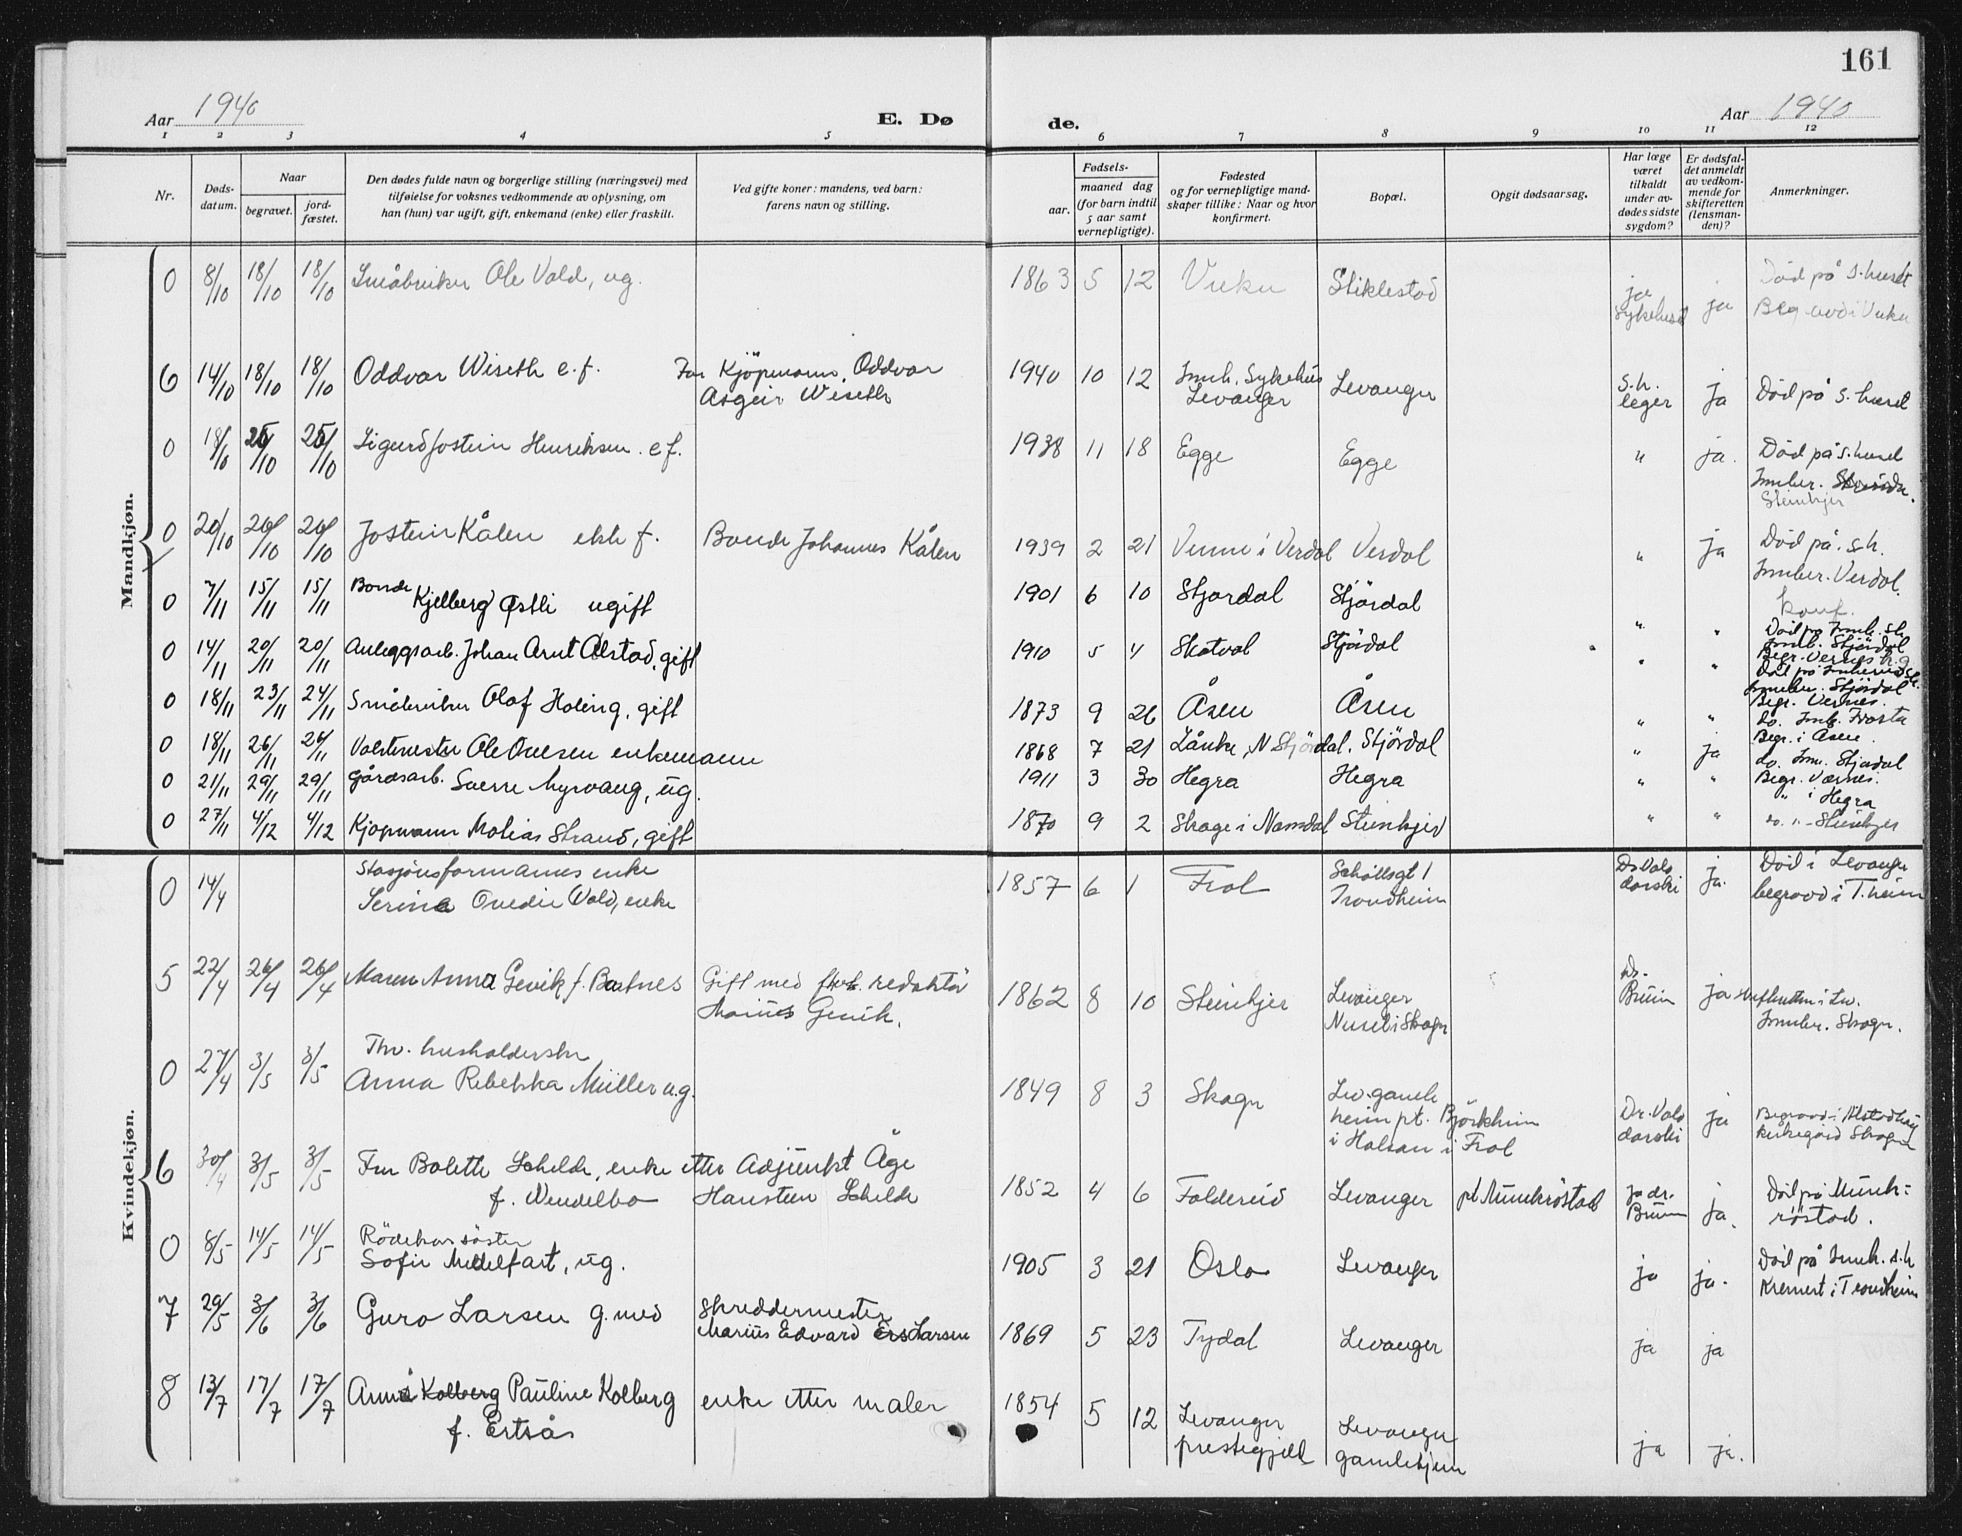 161
Aar 1940
E. Dø de.
Aar 1940
1 2 3 4 5 6 7 8 9 10 11 12
Nr.
Døds-
datum.
Naar
begravet.
jord-
fæstet.
Den dødes fulde navn og borgerlige stilling (næringsvei) med
tilføielse for voksnes vedkommende av oplysning, om
han (hun) var ugift, gift, enkemand (enke) eller fraskilt.
Ved gifte koner: mandens, ved barn:
farens navn og stilling.
Fødsels-
aar.
maaned dag
(for barn indtil
5 aar samt
vernepligtige).
Fødested
og for vernepligtige mand-
skaper tillike: Naar og hvor
konfirmert.
Bopæl.
Opgit dødsaarsag.
Har læge
været
tilkaldt
under av-
dødes sidste
sygdom?
Er dødsfal-
det anmeldt
av vedkom-
mende for
skifteretten
(lensman-
den)?
Anmerkninger.
Mandkjøn.
0 8/10 18/10 18/10 Småbruker Ole Vold, ug. 1863 5 12 Vuku Stiklestad ja sykehuset ja Død på s.huset
Begravd i Vuku
6 14/10 18/10 18/10 Oddvar Wiseth e.f. Far Kjöpmann Oddvar
Asgeir Wiseth 1940 10 12 Innh. Sykehus
Levanger Levanger s.h.
leger ja Död på s.huset
0 18/10 25/10 25/10 Sigurd Jostein Henriksen e.f. 1938 11 18 Egge Egge " ja. Död på s.huset
Innber.
Steinkjer
0 20/10 26/10 26/10 Jostein Kålen ekte f. Bonde Johannes Kålen 1939 2 21 Vinne i Verdal Verdal " ja Död på s.h.
Innber. Verdal.
0 7/11 15/11 15/11 Bonde Kjelberg Østli ugift 1901 6 10 Stjørdal Stjördal " "
0 14/11 20/11 20/11 Anleggsarb. Johan Arnt Alstad, gift 1910 5 4 Skatval Stjördal " " Död på Innh. sh.
Innb. Stjördal
0 18/11 23/11 24/11 Småbruker Olaf Holing, gift 1873 9 26 Åsen Åsen " " do. Innb. Frosta
Begr. i Åsen.
0 18/11 26/11 26/11 Ole Ovesen enkemann 1868 7 21 Lånke, N Stjördal. Stjördal " ja do. Inn. Stjördal
Begr. Værnes.
0 21/11 29/11 29/11 Gårdsarb. Sverre Myrvang, ug. 1911 3 30 Hegra Hegra " " " i Hegra
0 27/11 4/12 4/12 Kjøpmann Matias Strand, gift 1870 9 2 Skage i Namdal Steinkjer " " do. " Steinkjer
Kvindekjøn.
0 14/4 Stasjonsformanns enke
Serina Ovedie Vold, enke 1857 6 1 Frol
Trondheim Dr Vold
ja. Död i Levanger
begravd i T.heim
5 22/4 26/4 26/4 Maren Anna Gevik f. Bartnes Gift med fhv. redaktör
Marius Gevik. 1862 8 10 Steinkjer Levanger
Dr.
Bruun ja
Innber. Skogn.
0 27/4 3/5 3/5 Thv. husholderske
Anna Rebekka Müller ug. 1849 8 3 Skogn Lev. gamle
heim pt. Björkheim
i Halsan i Frol ja Begravd i Alstadhaug
kirkegård Skogn
6 30/4 3/5 3/5 Fru Bolette Schelde, enke etter Adjunkt Åge
f. Wendelbo Hansteen Schelde 1852 4 6 Foldereid Levanger pt Munkröstad ja dr.
Bruun ja. Död på Munk-
röstad.
0 8/5 14/5 14/5 Rödekorssöster
Sofie Middelfart, ug. 1905 3 21 Oslo Levanger ja ja. Död på Innh. s.h
Kremert i Trondheim
7 29/5 3/6 3/6 Guro Larsen g. med Skreddermester
Marius Edvard Larsen 1869 5 23 Tydal Levanger ja ja
8 13/7 17/7 17/7 Anna Kolberg Pauline Kolberg enke etter maler
f. Ertsås 1854 5 12 Levanger
prestegjeld Levanger
gamlehjem ja ja.